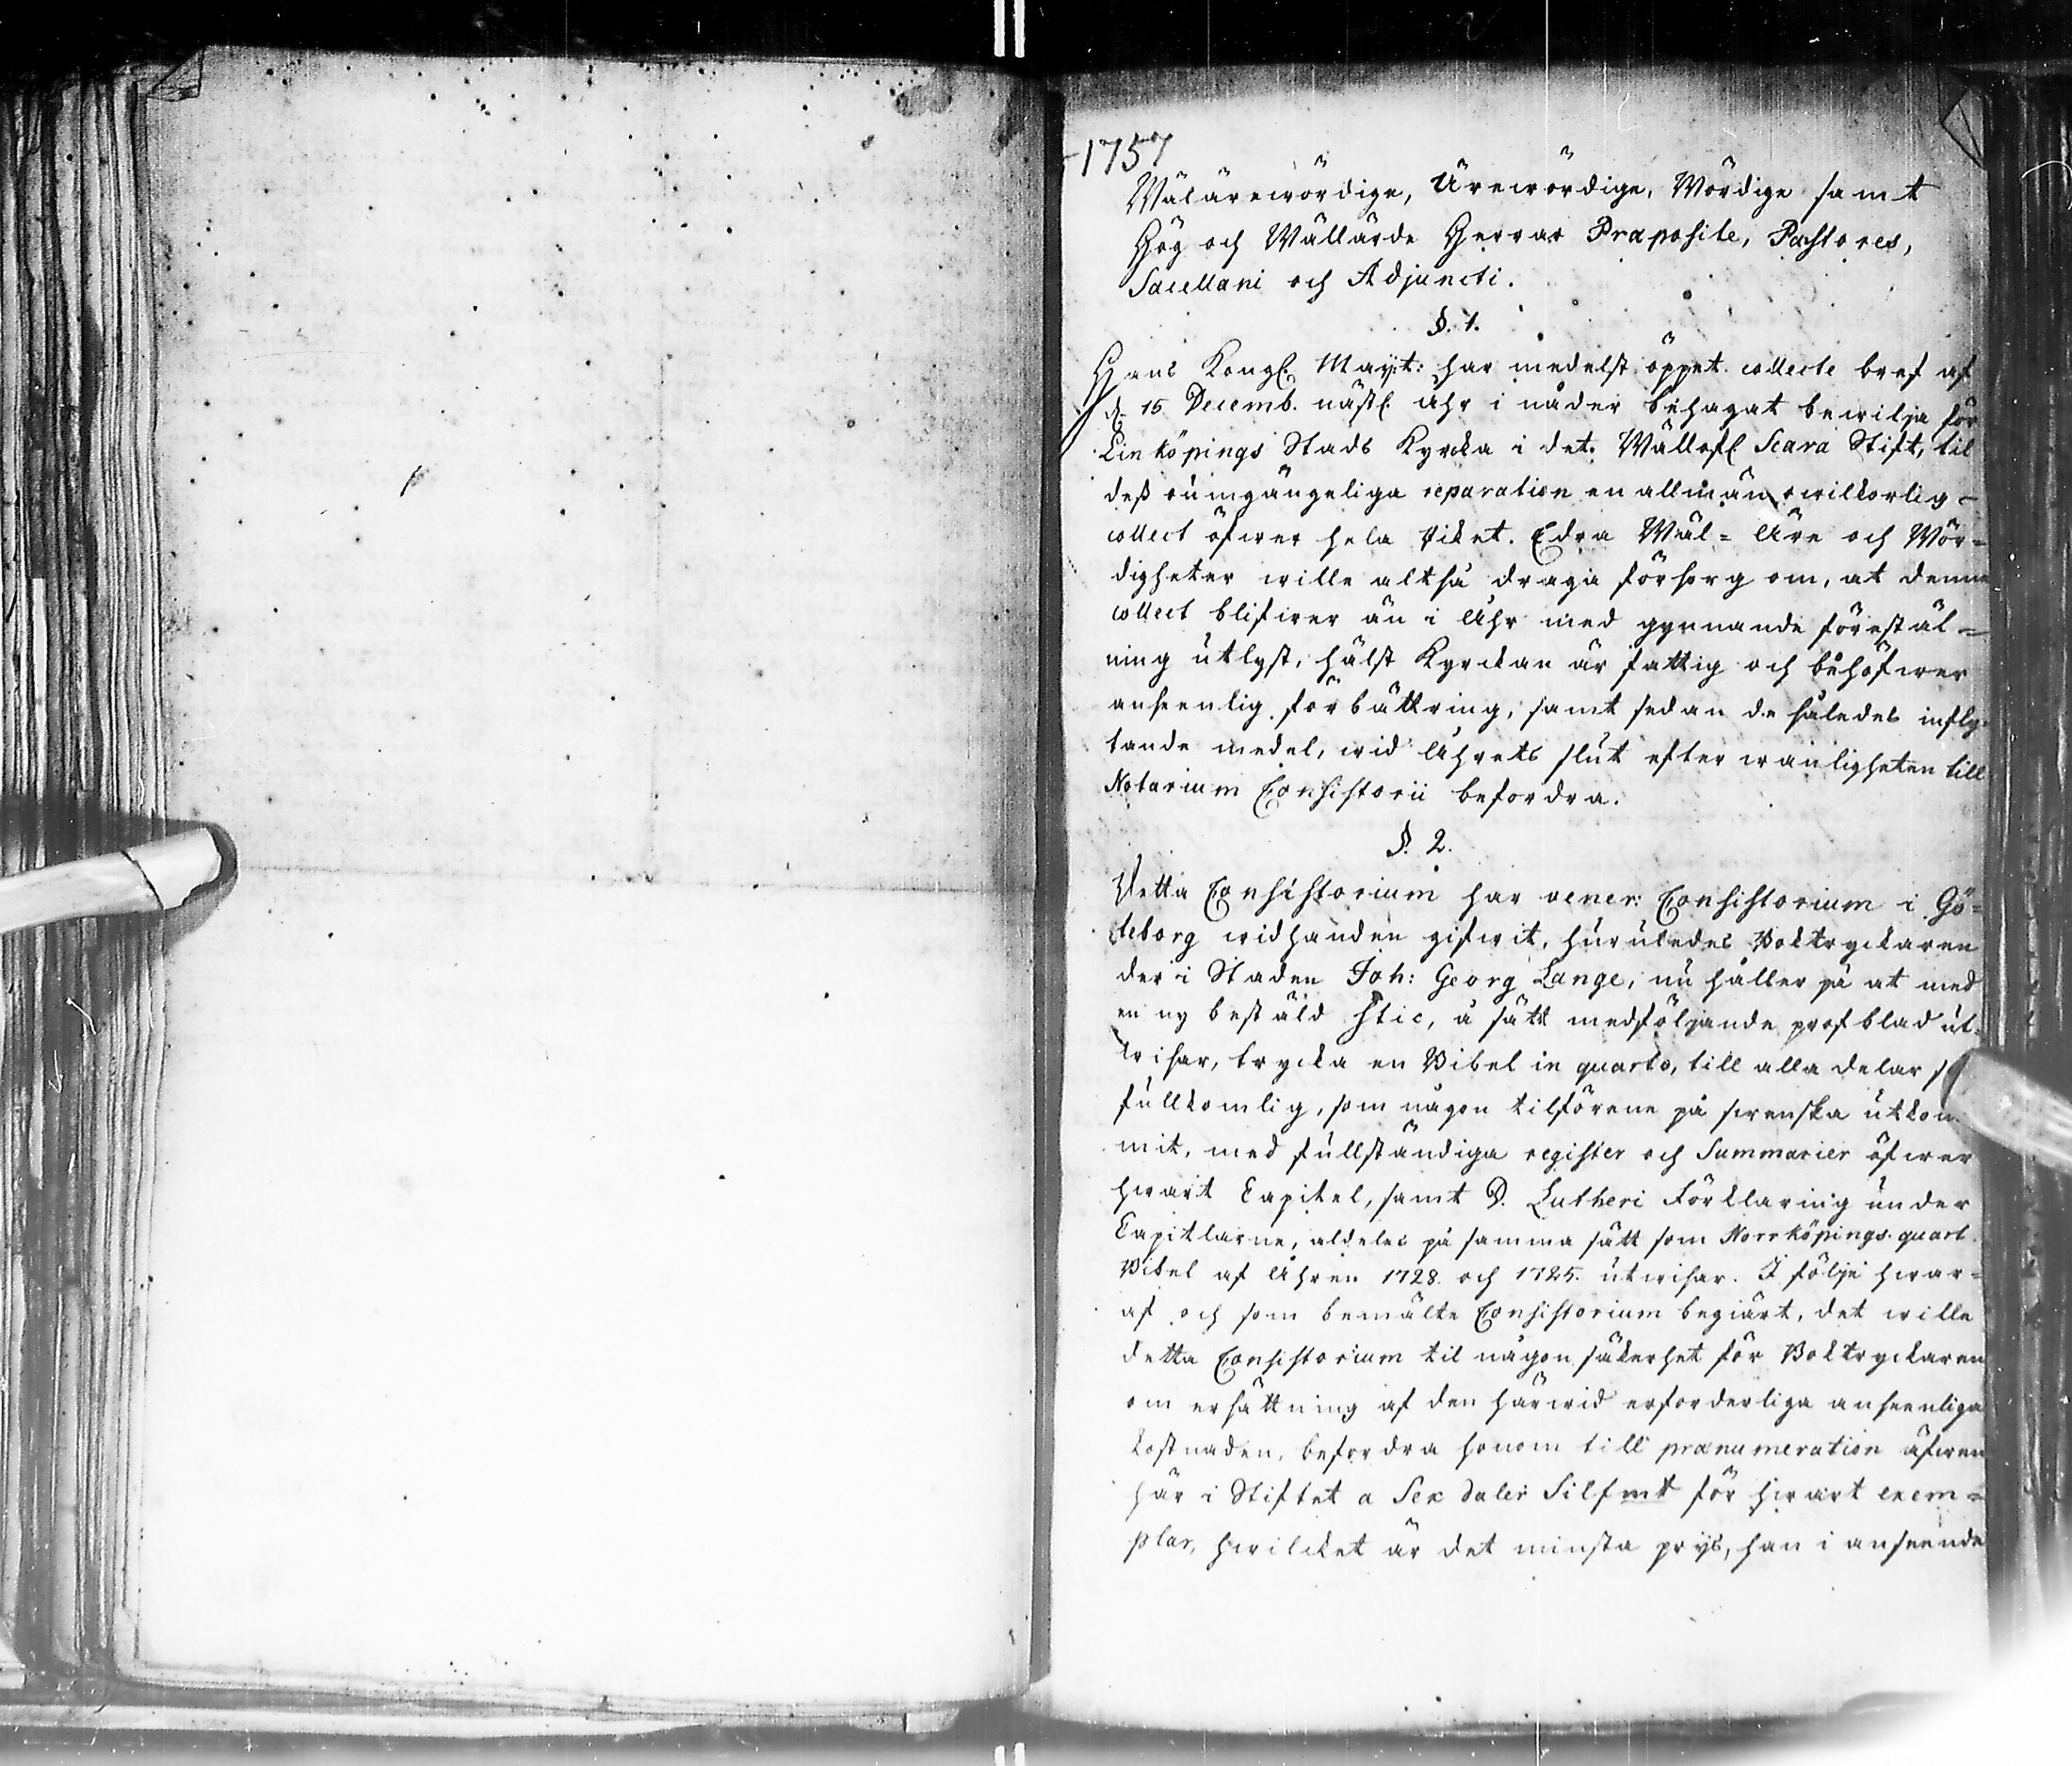 1757
Wälärewördige, Ärewördige, Wördige samt
Hög och Wällärde Herrar Præposite, Pastores,
Sacellani och Adjuncti.
§. 1.
Hans Kongl. Mayst: har medelst öppet collecte bref af
d. 15 Decemb. nästl. Åhr i nåder behagat bewilja för
Linköpings Stads Kyrcka i det Wällofl. Scara Stift, til
dess oumgängeliga reparation en allmän wilkorlig
collect öfwer hela Riket. Edra Wäl- Äre och Wör-
digheter wille altså draga försorg om, at denne
collect blifwer än i Åhr med gynnande förestäl-
ning utlyst, hälst Kyrckan är fattig och behöfwer
ansenlig förbättring, samt sedan de således infly-
tande medel, wid Åhrets slut efter wanligheten till
Notarium Consistorii befordra.
§. 2.
Detta Consistorium har vener: Consistorium i Gö-
teborg widhanden gifwit, huruledes Boktryckaren
der i Staden Joh: Georg Lange, nu håller på at med
en ny bestäld stic, å sätt medföljande profblad ut-
wisar, trycka en Bibel in quarto, till alla delar så
fullkomlig, som någon tilförene på swenska utkom-
mit, med fullständiga register och Summarier öfwer
hwart Capitel, samt D. Lutheri Förklaring under
Capitlarne, aldeles på samma sätt som Norrköpings quart
Bibel af Åhren 1728. och 1725. utwisar. I följe hwar-
af och som bemälte Consistorium begiärt, det wille
detta Consistorium til någon säkerhet för Boktryckaren
om ersättning af den härwid erforderliga ansenliga
kostnaden, befordra honom till prænumeration äfwen
här i Stiftet a Sex daler Silfmt för hwart exem-
plar, hwilcket är det minsta prijs, han i anseende